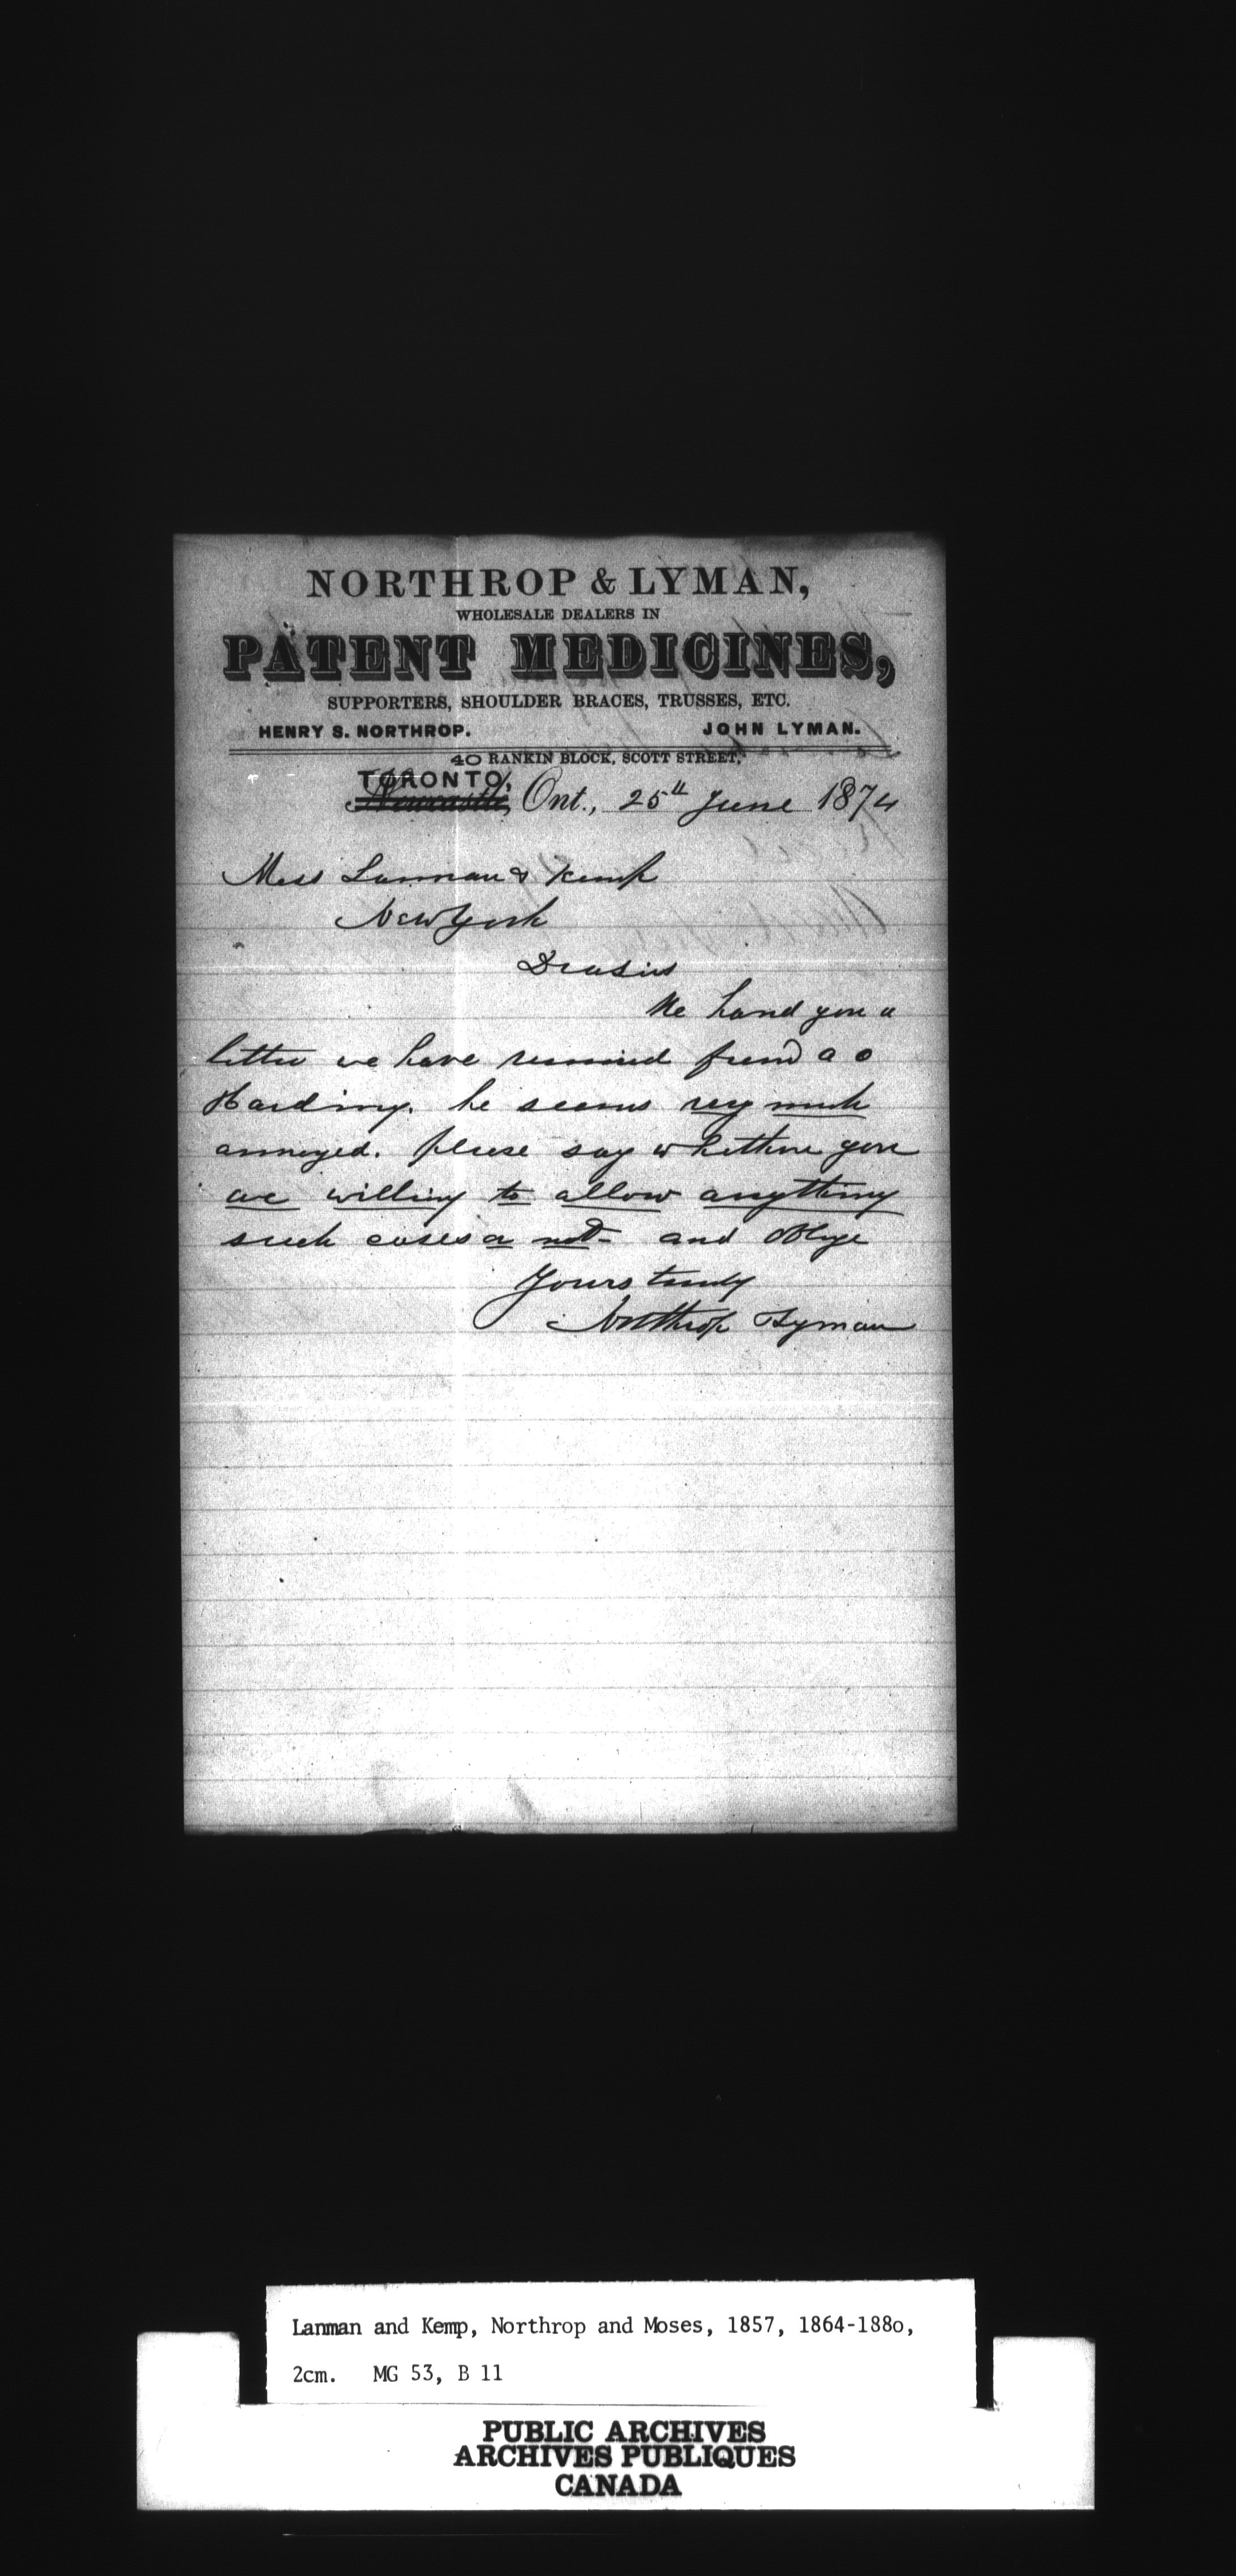 NORTHROP & LYMAN,
WHOLESALE DEALERS IN
PATENT MEDICINES,
SUPPORTERS, SHOULDER BRACES, TRUSSES, ETC.
HENRY S. NORTHROP. JOHN LYMAN.
40 RANKIN BLOCK, SCOTT STREET,
TORONTO,
Newcastle, Ont., 25th June 1874
Mess Lanman & Kemp
New York
Dear Sirs
We hand you a
letter we have received from
Harding. he seems very much
annoyed. please say whether you
are willing to allow anything
such cases or not - and oblige
Yours truly
Northrop Lyman
Lanman and Kemp, Northrop and Moses, 1857, 1864-1880,
2cm. MG 53, B 11
PUBLIC ARCHIVES
ARCHIVES PUBLIQUES
CANADA